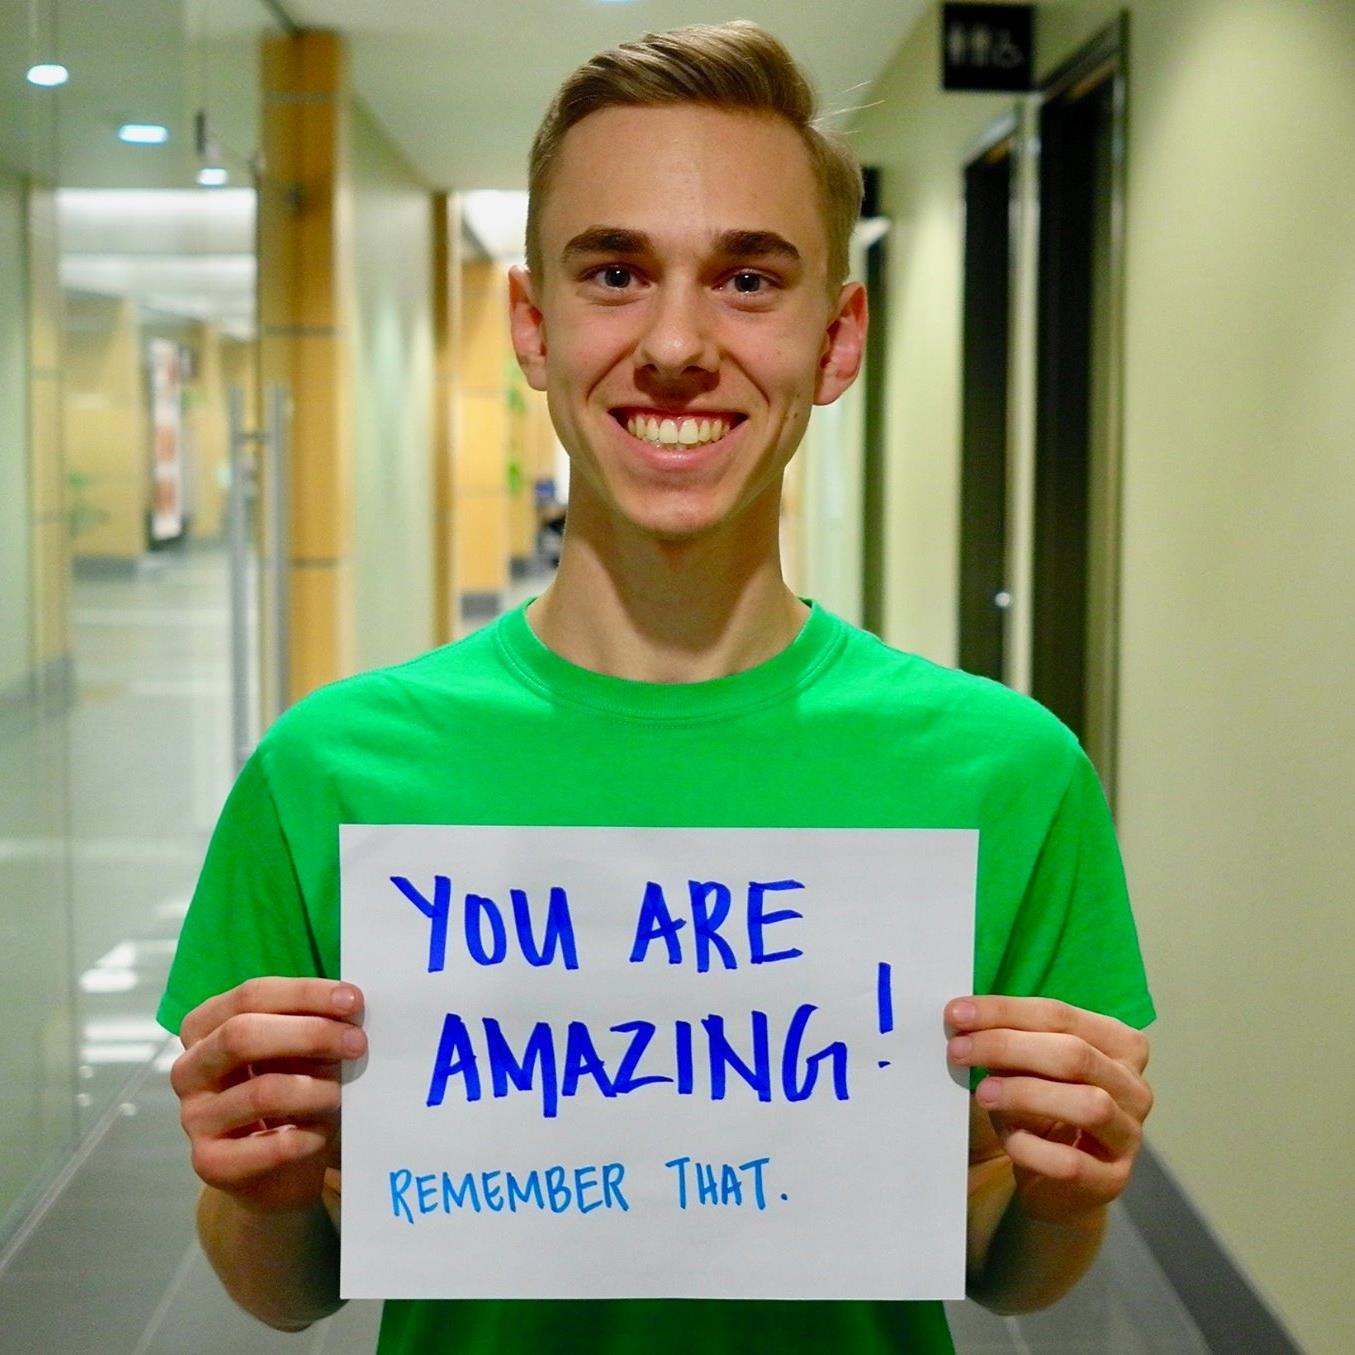 YOU ARE
AMAZING!
REMEMBER THAT.